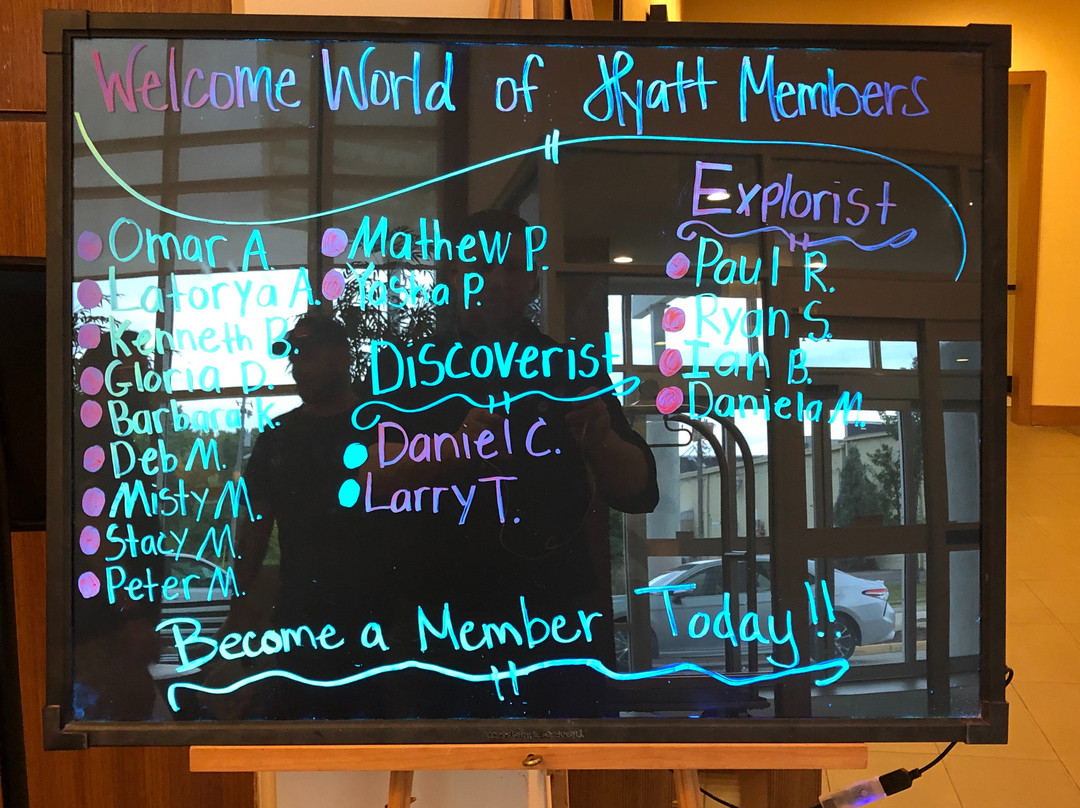 Welcome World of Hyatt Members
Omar A.
Latorya A.
Kenneth B.
Gloria D.
Barbara K.
Deb M.
Misty M.
Stacy M.
Peter M.
Mathew P.
Yasha P.
Discoverist
Daniel C.
Larry T.
Explorist
Paul R.
Ryan S.
Ian B.
Daniela M.
Become a Member Today!!